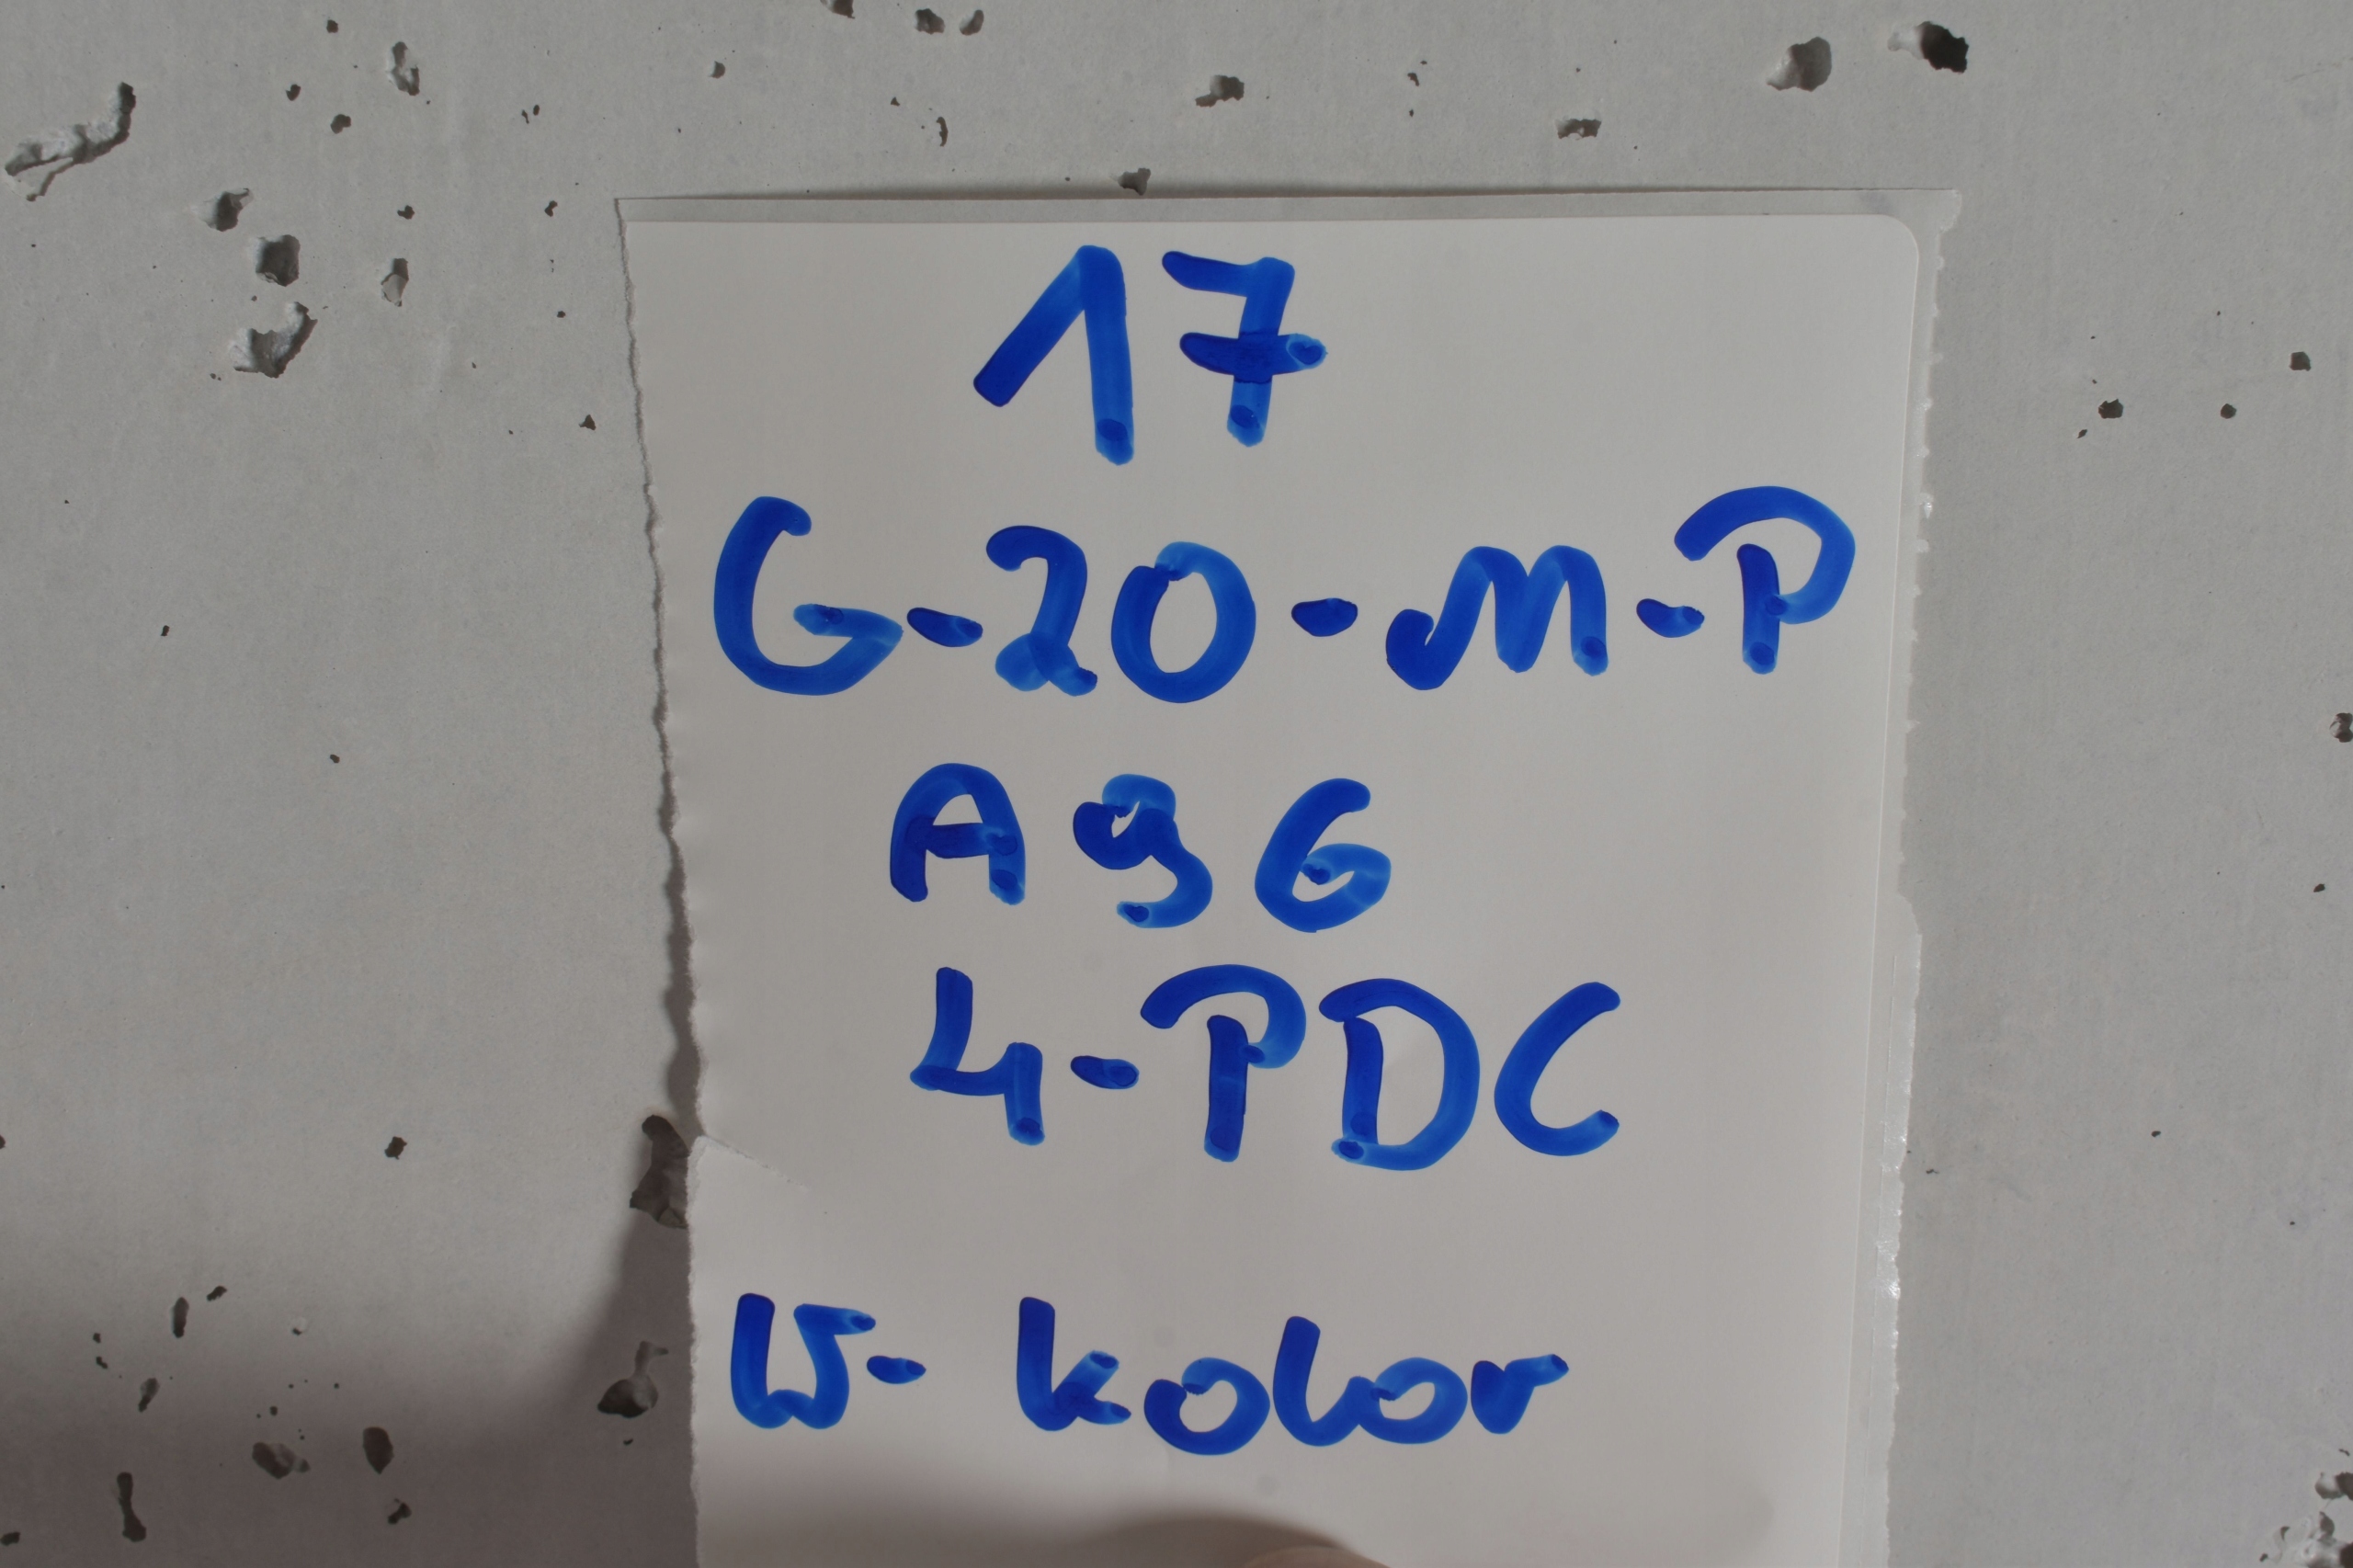 17
G-20-M-P
A96
4-PDC
W-kolor